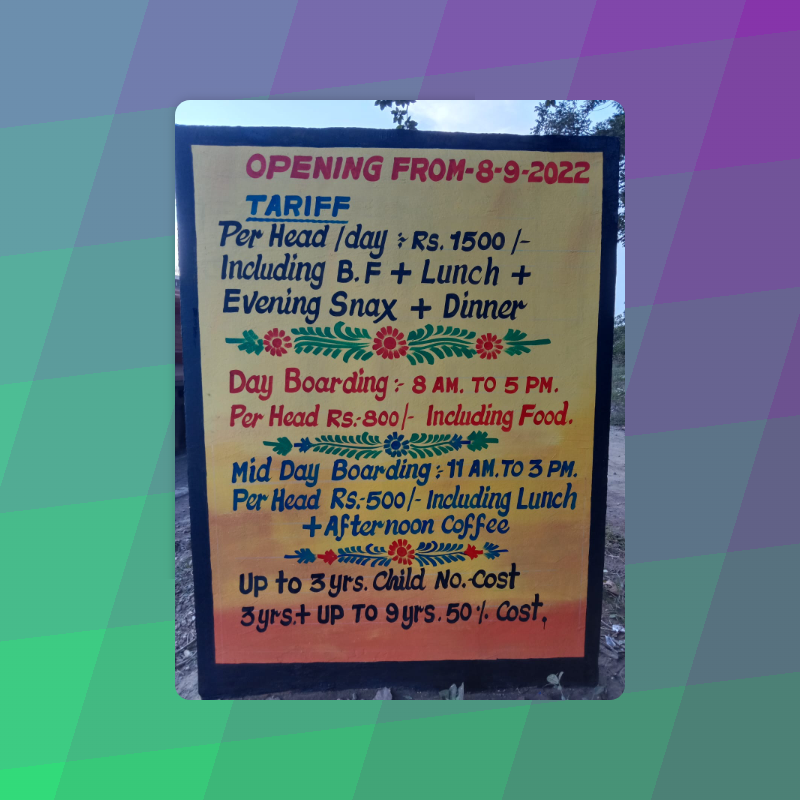 OPENING FROM-8-9-2022
TARIFF
Per Head /day :- Rs. 1500 /-
Including B.F + Lunch +
Evening Snax + Dinner
Day Boarding :- 8 AM. TO 5 PM.
Per Head Rs.-800/- Including Food.
Mid Day Boarding :- 11 AM. TO 3 PM.
Per Head Rs.-500/- Including Lunch
+Afternoon Coffee
UP to 3 yrs. Child No.-Cost
3 yrs.+ UP TO 9 yrs. 50 % Cost.